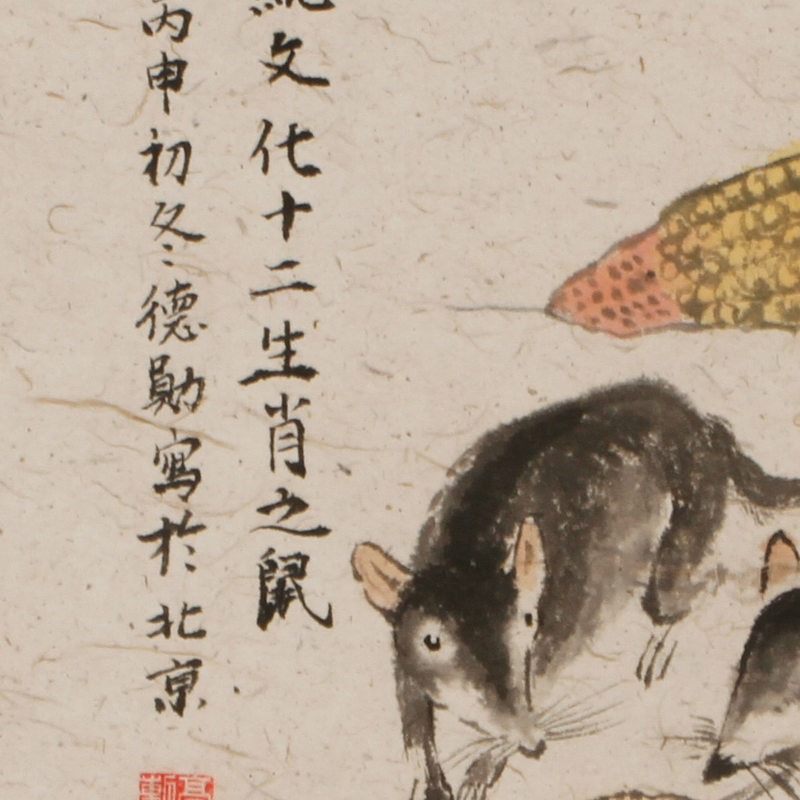 文化十二生肖之鼠
丙申初冬德勛寫於北京